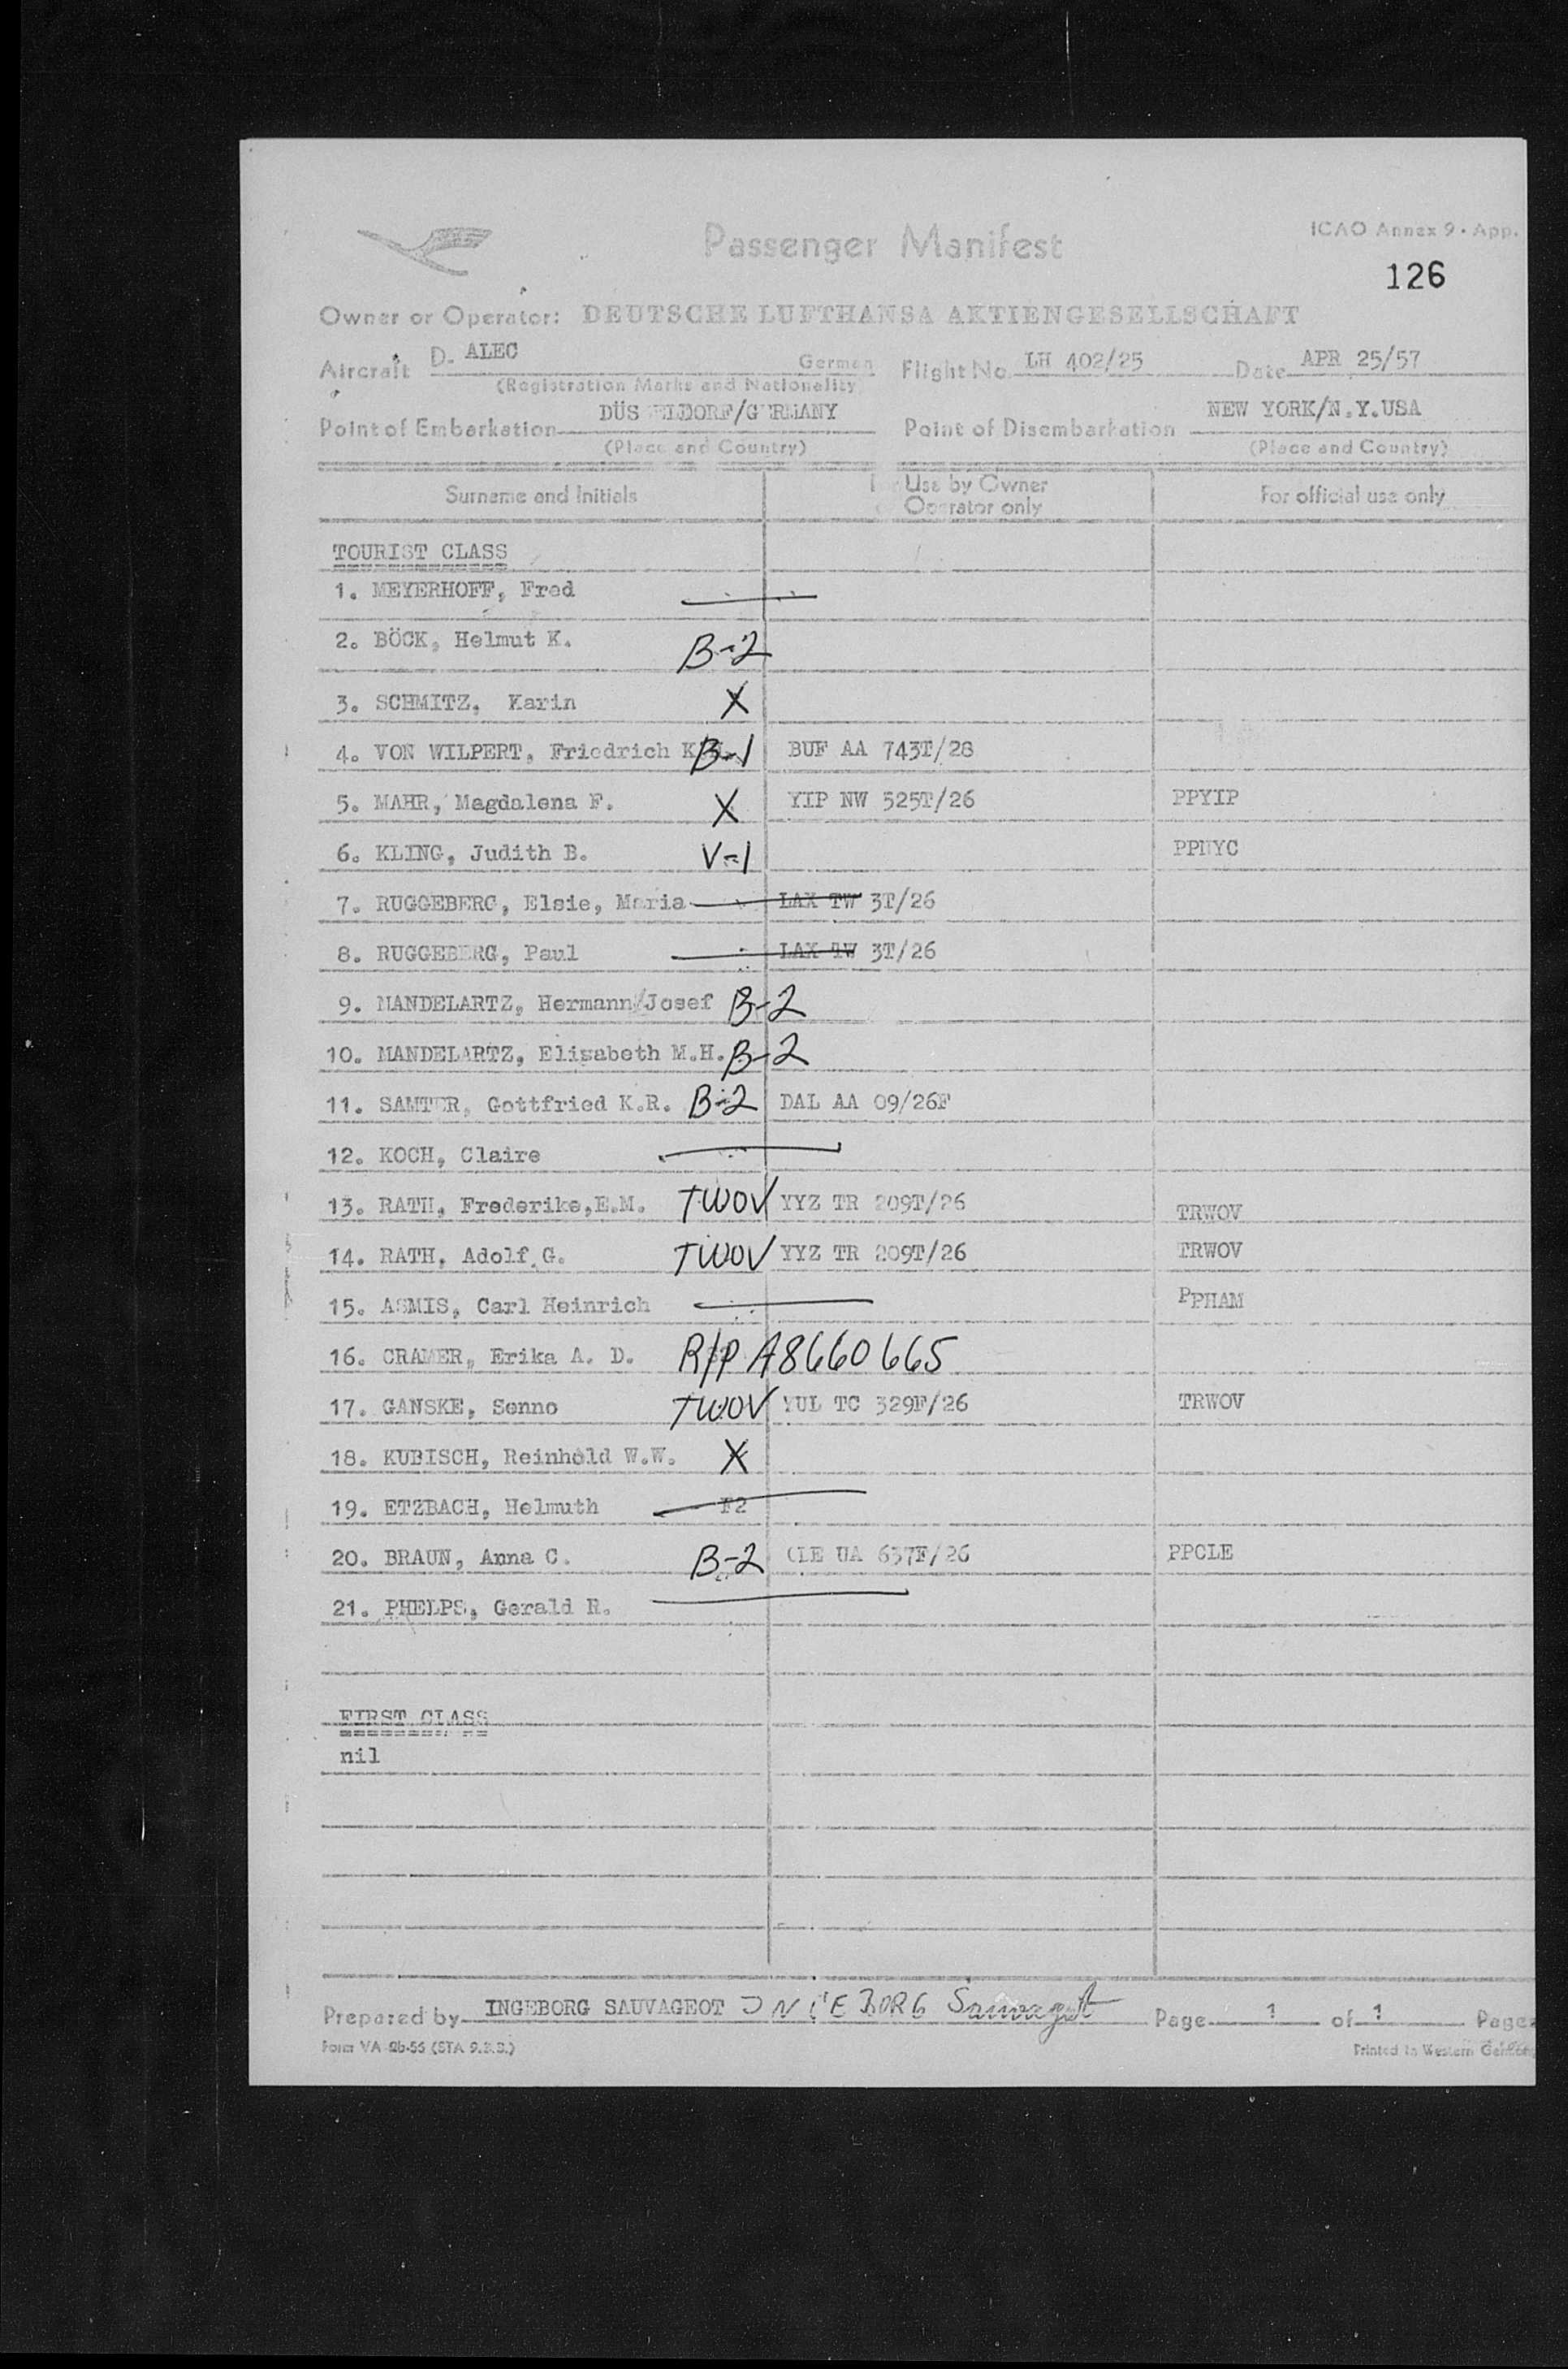 Passenger Manifest
ICAO Annex 9 · App.
126
Owner or Operator: DEUTSCHE LUFTHANSA AKTIENGESELLSCHAFT
Aircraft D- ALEC German Flight No. LH 402/25 Date APR 25/57
(Registration Marks and Nationality)
Point of Embarkation DÜSSELDORF/GERMANY Point of Disembarkation NEW YORK/N.Y.USA
(Place and Country) (Place and Country)
Surname and Initials For Use by Owner or Operator only For official use only
TOURIST CLASS
1. MEYERHOFF, Fred
2. BÖCK, Helmut K. B-2
3. SCHMITZ, Karin X
4. VON WILPERT, Friedrich B-1 BUF AA 743T/28
5. MAHR, Magdalena F. X YIP NW 525T/26 PPYIP
6. KLING, Judith B. V-1 PPNYC
7. RUGGEBERG, Elsie, Maria LAX TW 3T/26
8. RUGGEBERG, Paul LAX TW 3T/26
9. MANDELARTZ, Hermann/Josef B-2
10. MANDELARTZ, Elisabeth M.H. B-2
11. SAMTER, Gottfried K.R. B-2 DAL AA 09/26F
12. KOCH, Claire
13. RATH, Frederike,E.M. TWOV YYZ TR 209T/26 TRWOV
14. RATH, Adolf G. TWOV YYZ TR 209T/26 TRWOV
15. ASMIS, Carl Heinrich PPHAM
16. CRAMER, Erika A. D. R/P A8660665
17. GANSKE, Senno TWOV YUL TC 329F/26 TRWOV
18. KUBISCH, Reinhold W.W. X
19. ETZBACH, Helmuth F2
20. BRAUN, Anna C. B-2 CLE UA 637F/26 PPCLE
21. PHELPS, Gerald R.
FIRST CLASS
nil
Prepared by INGEBORG SAUVAGEOT INGEBORG Sauvageot Page 1 of 1 Pages
Form VA 2b-55 (STA 9.3.3.) Printed in Western Germany